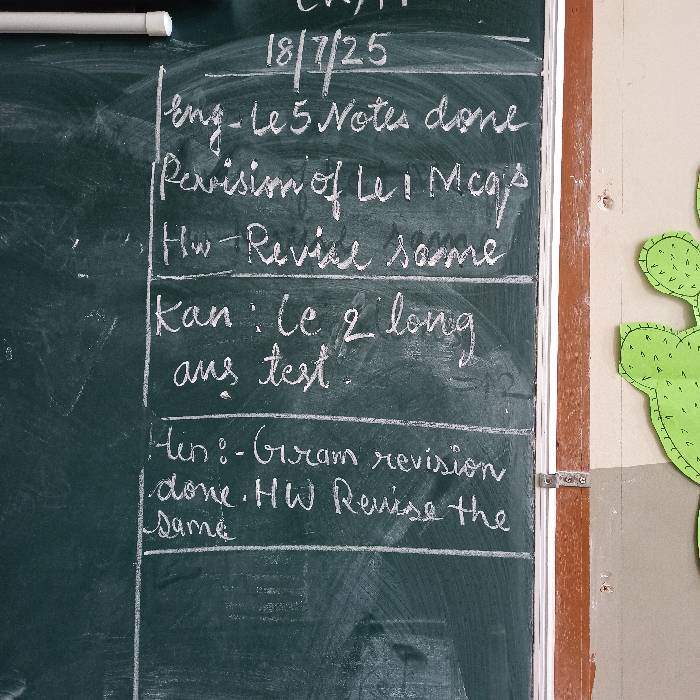 18/7/25
Eng - Le 5 Notes done
Revision of Le 1 Mcq's
Hw - Revise same
Kan : Le 2 long
ans test.
Hin :- Gram revision
done. HW Revise the
same